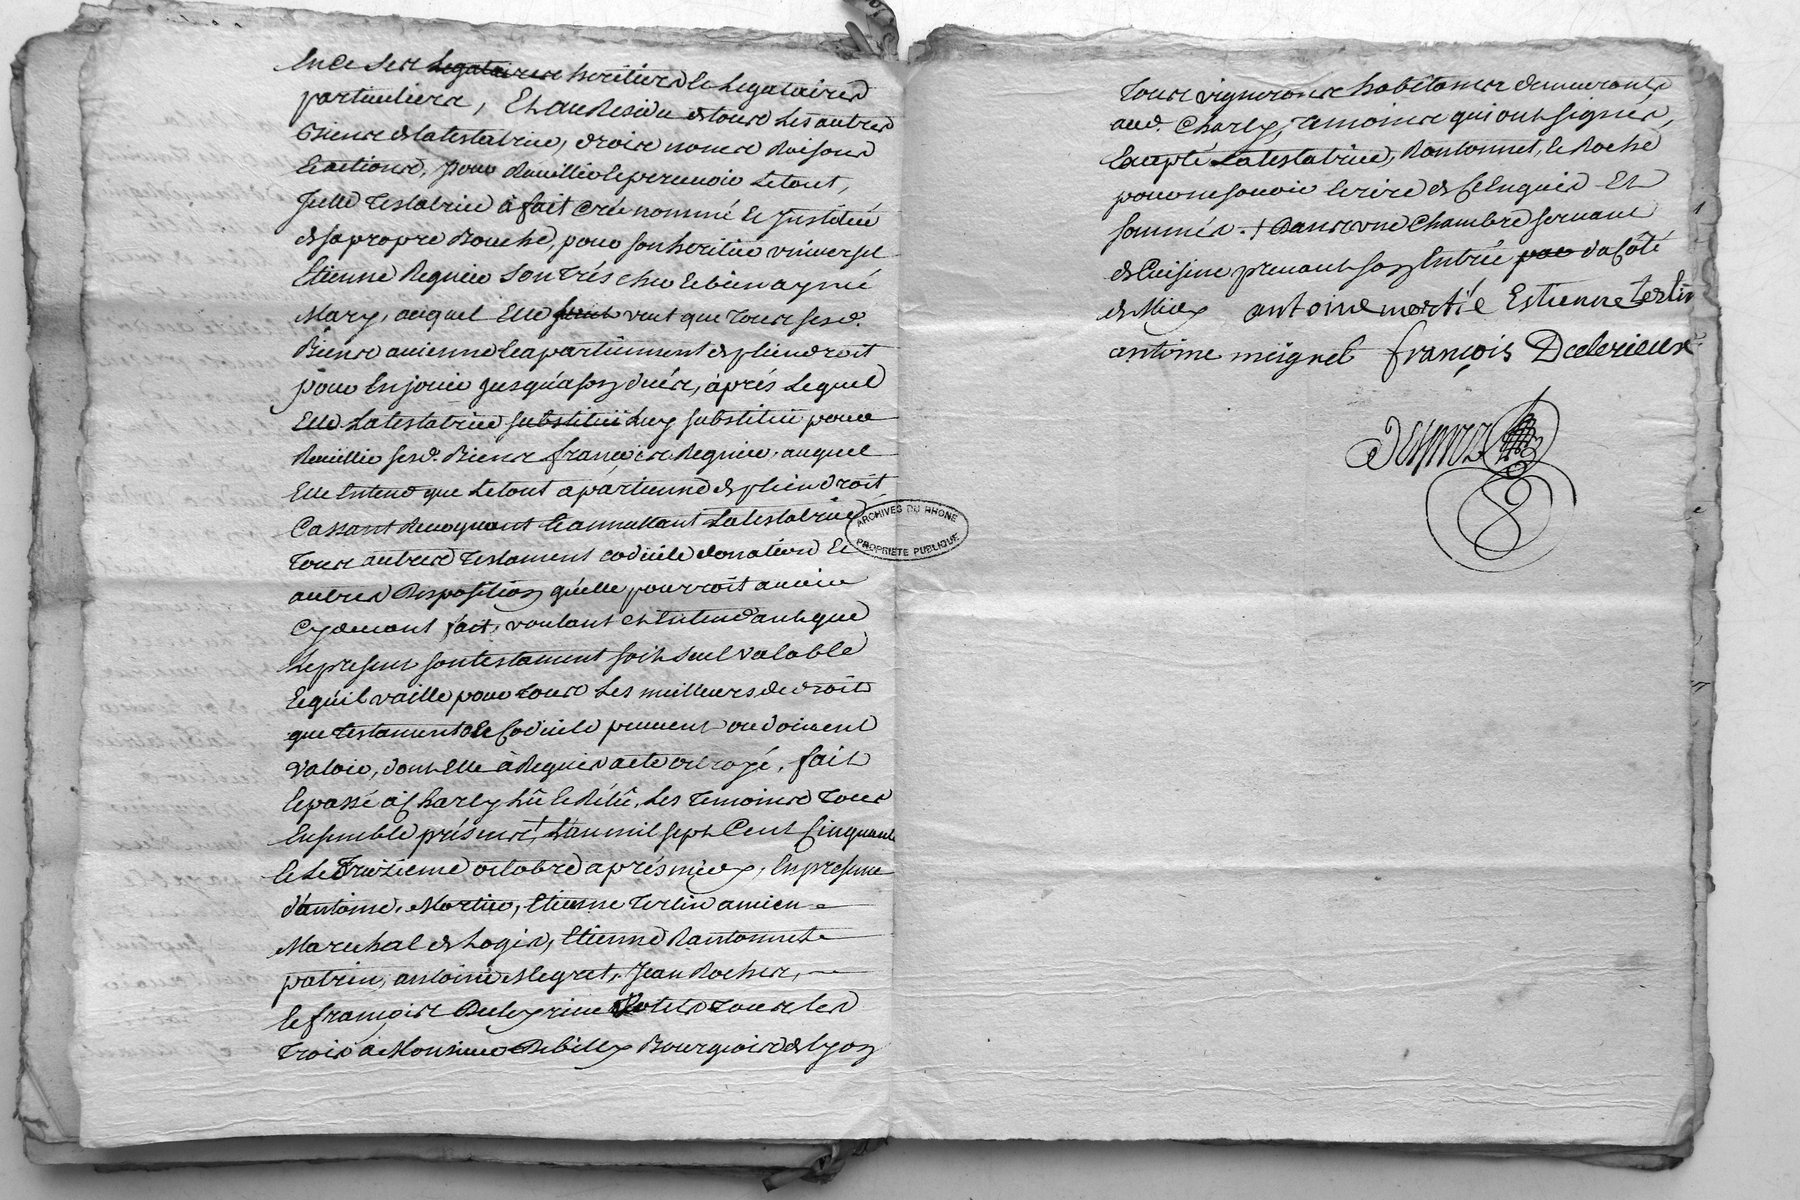 en ce ses legataires heritiers & legataires
particuliers, Et au Residu de tous les autres
Biens de la testatrice, droits noms Raisons
& actions, pour Recueillir & percevoir le tout,
Jcelle Testatrice à fait créé nommé & Jnstitué
de sa propre Bouche, pour son heritier universel
Etienne Regnier son trés cher & bien aymé
Mary, auquel Elle veut que tous sesd.
Biens aviennent & apartiennent de plein droit
pour en jouir jusqu'a son decés, aprés lequel
Elle la testatrice substitüe Luy substitue pour
Recueillir sesd. Biens françois Regnier, auquel
Elle Entend que le tout apartienne de plein droit
Cassant Revoquant & annullant la testatrice
Tous autres Testament codicile donation &
autres Disposition quelle pourroit avoir
cy devant fait, voulant et Entendant que
le present son testament soit seul valable
& qu'il vaille pour tous les meilleurs de droits
que testament & Codicile peuvent ou doivent
valoir, dont Elle à Requis acte octroyé, fait
& passé à Charly Lû & Rélû, les Temoins tous
Ensemble présents, L'an mil sept Cent Cinquante
& le Treizieme octobre aprés midy, En presence
d'antoine Mortier, Etienne Terlin ancien
Marechal de Logis, Etienne Rantonnet
patrin, antoine Megret, Jean Rocher,
& françois Deleyrieu tous les
trois à Monsieur Debilly Bourgeois de Lyon
Tous vignerons habitants demeurants
aud. Charly, Temoins qui ont signés,
Excepté La testatrice, Rantonnet, & Roché
pour ne sçavoir Ecrire de ce Enquis Et
sommés. + Dans une Chambre servant
de Cuisine prenant son Entrée par du Côté
de Midy antoine mortié Estienne terlin
antoine meignet françois Deelerieux